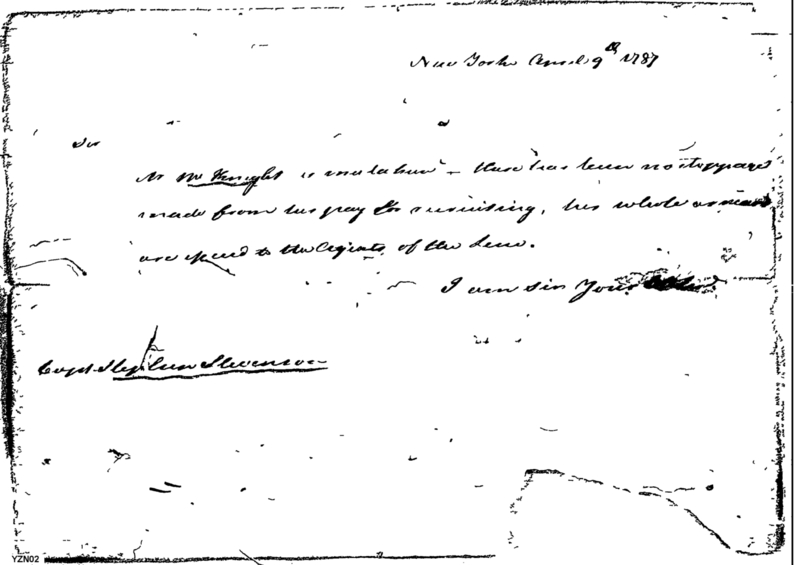 New York April 9th 1787
Sir
Mr McKnight is mistaken – there has been no stoppage
made from his pay for recruiting, his whole arrears
are issued to the Agents of the Line.
I am Sir Your
Capt Stephen Stevenson
YZN02